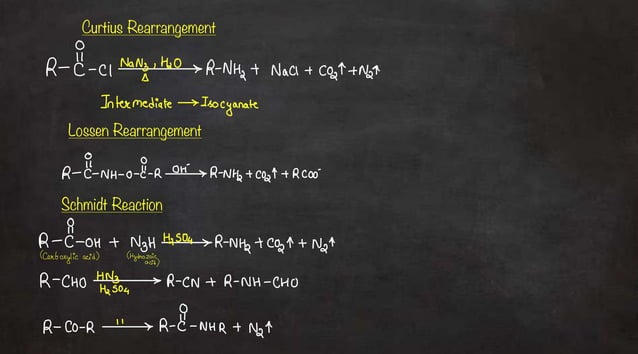 Curtius Rearrangement
O
R-C-Cl NaN3, H2O Δ → R-NH2 + NaCl + CO2↑ + N2↑
Intermediate → Isocyanate
Lossen Rearrangement
O O
R-C-NH-O-C-R OH⁻ → R-NH2 + CO2↑ + RCOO⁻
Schmidt Reaction
O
R-C-OH + N3H H2SO4 → R-NH2 + CO2↑ + N2↑
(Carboxylic acid) (Hydrazoic acid)
R-CHO HN3 H2SO4 → R-CN + R-NH-CHO
O
R-CO-R " → R-C-NHR + N2↑